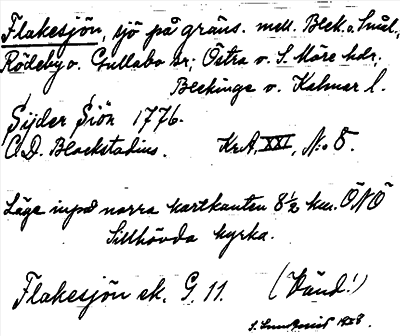 Flakesjön, sjö på gräns. mell. Blek. o. Smål.,
Rödeby o. Gullabo sr; Östra o. S. Möre hdr,
Blekinge o. Kalmar l.
Sijder Siön 1776.
C.D. Blackstadius. KrA, XXI, No 8.
Läge inpå norra kartkanten 8½ km. ÖNÖ
Sillhövda kyrka.
Flakesjön ek. G. 11. (Vänd!)
S. 1928.